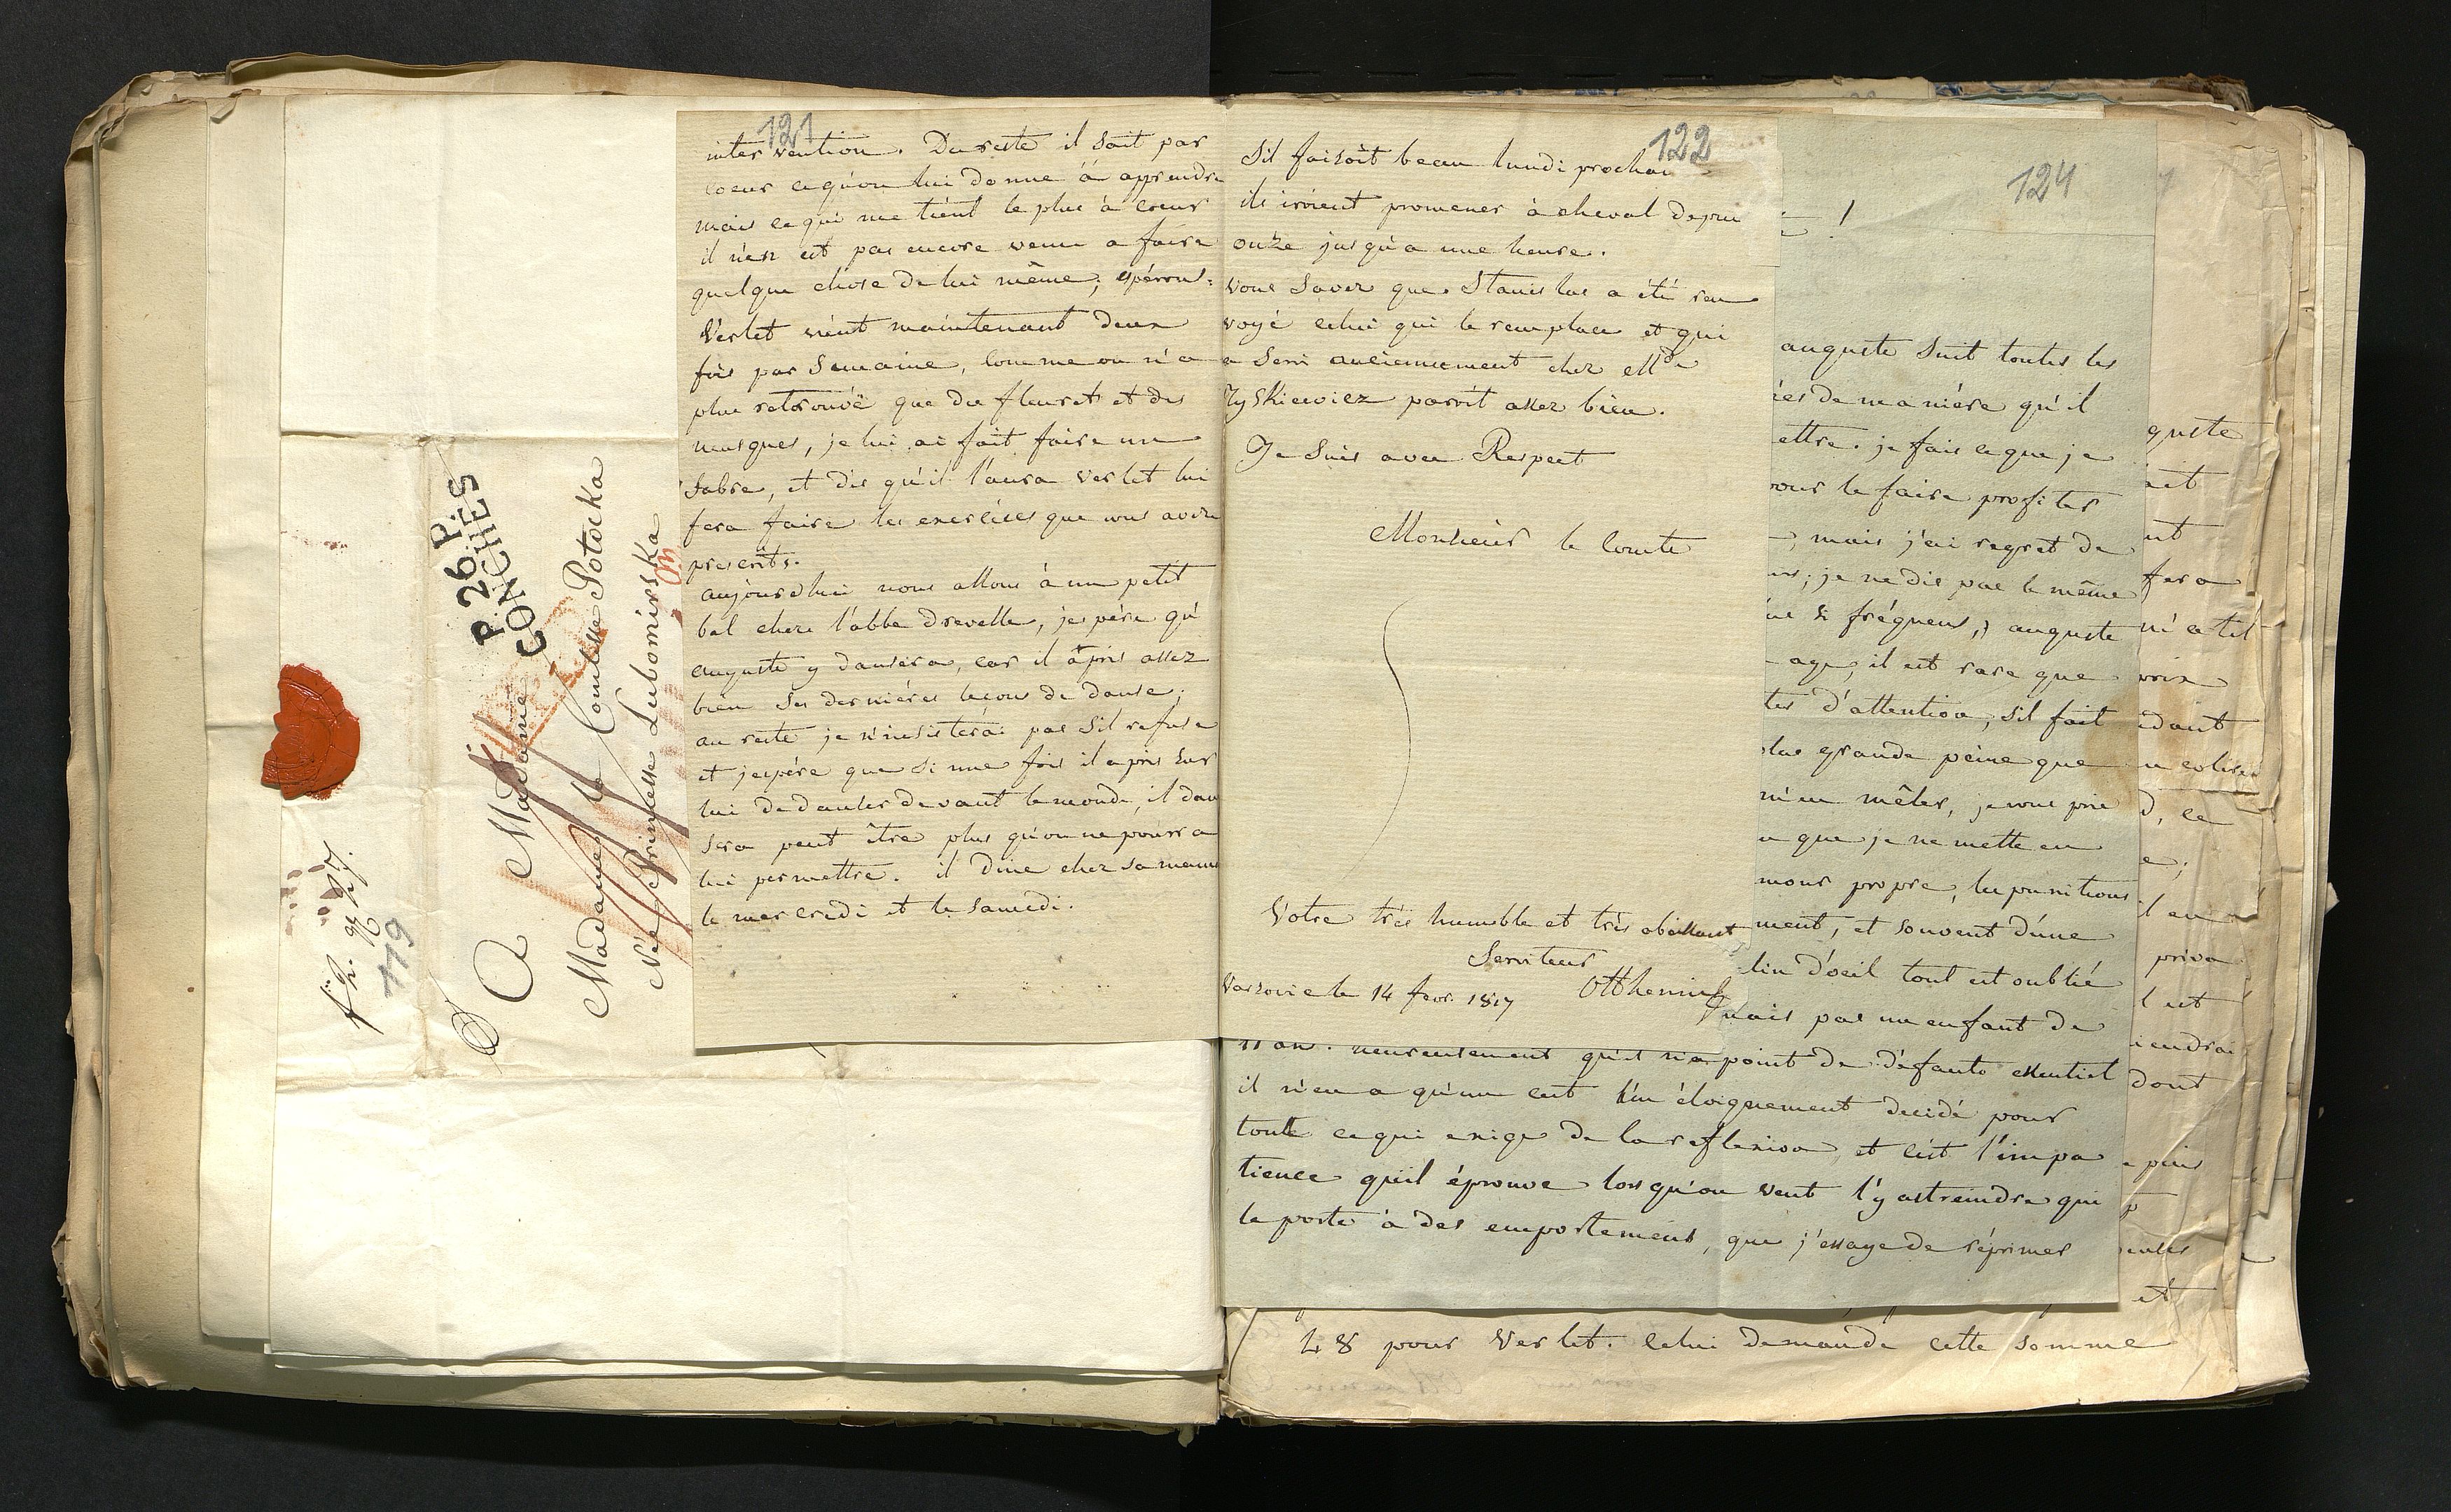 P. 26 P.
CONCHES
A Madame
Madame la Comtesse Potocka
Née Princesse Lubomirska
119
121
intervention. Du reste il sait par
coeur ce qu'on lui donne à apprendre
mais ce qui me tient le plus à coeur
il n'en est pas encore venu a faire
quelque chose de lui même; espérons:
Verlet vient maintenant deux
fois par Semaine, comme on n'a
plus retrouvé que des fleurets et des
masques, je lui ai fait faire un
Sabre, et dès qu'il l'aura Verlet lui
fera faire les exercices que vous avez
prescrits.
aujourdhui nous allons à un petit
bal chez l'abbé Drevelle, j'espére qu'
auguste y dansera, car il à pris assez
bien ses derniéres leçons de danse;
au reste je n'insisterai pas s'il refuse
et j'espére que si une fois il a pris sur
lui de danser devant le monde, il dan
sera peut être plus qu'on ne pourra
lui permettre. il dine chez sa maman
le mercredi et le samedi.
122
Sil faisoit beau lundi prochai
ils iroient promener à cheval depui
onze jusqu'a une heure.
Vous savez que Stanislas a été ren
voyé celui qui le remplace et qui
a servi anciennement chez Mde
Tyskiewicz paroit assez bien.
Je Suis avec Respect
Monsieur le Comte
Votre très humble et très obeissant
Serviteur
Varsovie le 14 fevr. 1817 Otthenin
124
!
auguste suit toutes les
ées de manière qu'il
ettre. je fais ce que je
pour le faire profiter
, mais j'ai regret de
; je ne dis pas le même
si fréquens, auguste
age, il est rare que
tes d'attention, s'il fait
plus grande peine que
m'en mêler, je vous prie
que je ne mette en
mour propre, les punitions
ment, et souvent d'une
lin d'oeil tout est oublié
vais pas un enfant de
11 an. heureusement qu'il n'a point de défauts essentiel
il n'en a qu'un c'est un éloignement decidé pour
tout ce qui exige de la reflexion, et c'est l'impa
tience qu'il éprouve lorsqu'on veut l'y astreindre qui
le porte à des emportemens, que j'essaye de réprimer
guste
ait
nt
fera
ni a til
voix
dant
d, ce
e;
l en
priva
l est
iendrai
dont
puis
et
48 pour Verlet. Celui demande cette somme